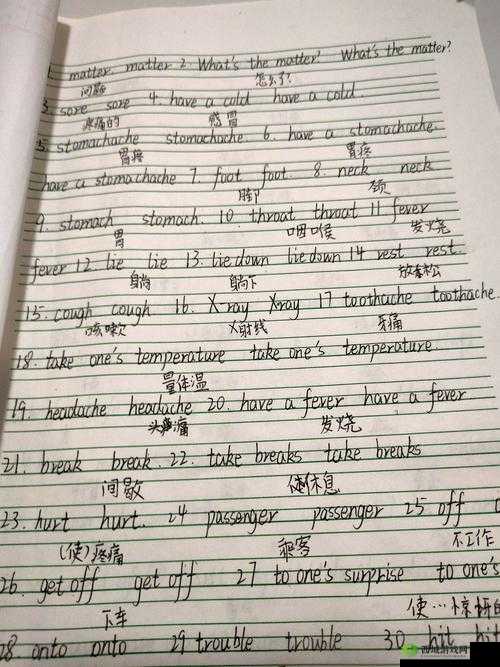 1. matter. matter 2. What's the matter? What's the matter?
问题 怎么了?
3. sore sore 4. have a cold have a cold.
疼痛的 感冒
5. stomachache stomachache. 6. have a stomachache.
胃疼 胃疼
have a stomachache 7. foot foot. 8. neck neck
脚 颈
9. stomach stomach. 10 throat throat 11 fever
胃 咽喉 发烧
fever 12. lie lie 13. lie down lie down 14 rest rest.
躺 躺下 放松
15. cough cough. 16. X-ray X-ray 17 toothache toothache
咳嗽 X射线 牙痛
18. take one's temperature take one's temperature.
量体温
19. headache headache 20. have a fever have a fever
头痛 发烧
21. break break. 22. take breaks take breaks
间歇 休息
23. hurt hurt. 24 passenger passenger 25 off
(使)疼痛 乘客 不工作
26. get off get off 27 to one's surprise to one's
下车 使…惊讶的
28. onto onto 29 trouble trouble 30. hit hit
西城游戏网